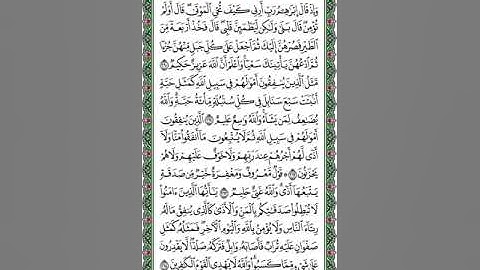 وَإِذْ قَالَ إِبْرَٰهِـۧمُ رَبِّ أَرِنِى كَيْفَ تُحْىِ ٱلْمَوْتَىٰ قَالَ أَوَلَمْ
تُؤْمِن قَالَ بَلَىٰ وَلَـٰكِن لِّيَطْمَئِنَّ قَلْبِى قَالَ فَخُذْ أَرْبَعَةً مِّنَ
ٱلطَّيْرِ فَصُرْهُنَّ إِلَيْكَ ثُمَّ ٱجْعَلْ عَلَىٰ كُلِّ جَبَلٍ مِّنْهُنَّ جُزْءًا
ثُمَّ ٱدْعُهُنَّ يَأْتِينَكَ سَعْيًا وَٱعْلَمْ أَنَّ ٱللَّهَ عَزِيزٌ حَكِيمٌ
مَّثَلُ ٱلَّذِينَ يُنفِقُونَ أَمْوَٰلَهُمْ فِى سَبِيلِ ٱللَّهِ كَمَثَلِ حَبَّةٍ
أَنۢبَتَتْ سَبْعَ سَنَابِلَ فِى كُلِّ سُنۢبُلَةٍ مِّا۟ئَةُ حَبَّةٍ وَٱللَّهُ
يُضَـٰعِفُ لِمَن يَشَآءُ وَٱللَّهُ وَٰسِعٌ عَلِيمٌ ٱلَّذِينَ يُنفِقُونَ
أَمْوَٰلَهُمْ فِى سَبِيلِ ٱللَّهِ ثُمَّ لَا يُتْبِعُونَ مَآ أَنفَقُوا۟ مَنًّا وَلَآ
أَذًى لَّهُمْ أَجْرُهُمْ عِندَ رَبِّهِمْ وَلَا خَوْفٌ عَلَيْهِمْ وَلَا هُمْ
يَحْزَنُونَ قَوْلٌ مَّعْرُوفٌ وَمَغْفِرَةٌ خَيْرٌ مِّن صَدَقَةٍ
يَتْبَعُهَآ أَذًى وَٱللَّهُ غَنِىٌّ حَلِيمٌ يَـٰٓأَيُّهَا ٱلَّذِينَ ءَامَنُوا۟
لَا تُبْطِلُوا۟ صَدَقَـٰتِكُم بِٱلْمَنِّ وَٱلْأَذَىٰ كَٱلَّذِى يُنفِقُ مَالَهُۥ
رِئَآءَ ٱلنَّاسِ وَلَا يُؤْمِنُ بِٱللَّهِ وَٱلْيَوْمِ ٱلْـَٔاخِرِ فَمَثَلُهُۥ كَمَثَلِ
صَفْوَانٍ عَلَيْهِ تُرَابٌ فَأَصَابَهُۥ وَابِلٌ فَتَرَكَهُۥ صَلْدًا لَّا يَقْدِرُونَ
عَلَىٰ شَىْءٍ مِّمَّا كَسَبُوا۟ وَٱللَّهُ لَا يَهْدِى ٱلْقَوْمَ ٱلْكَـٰفِرِينَ